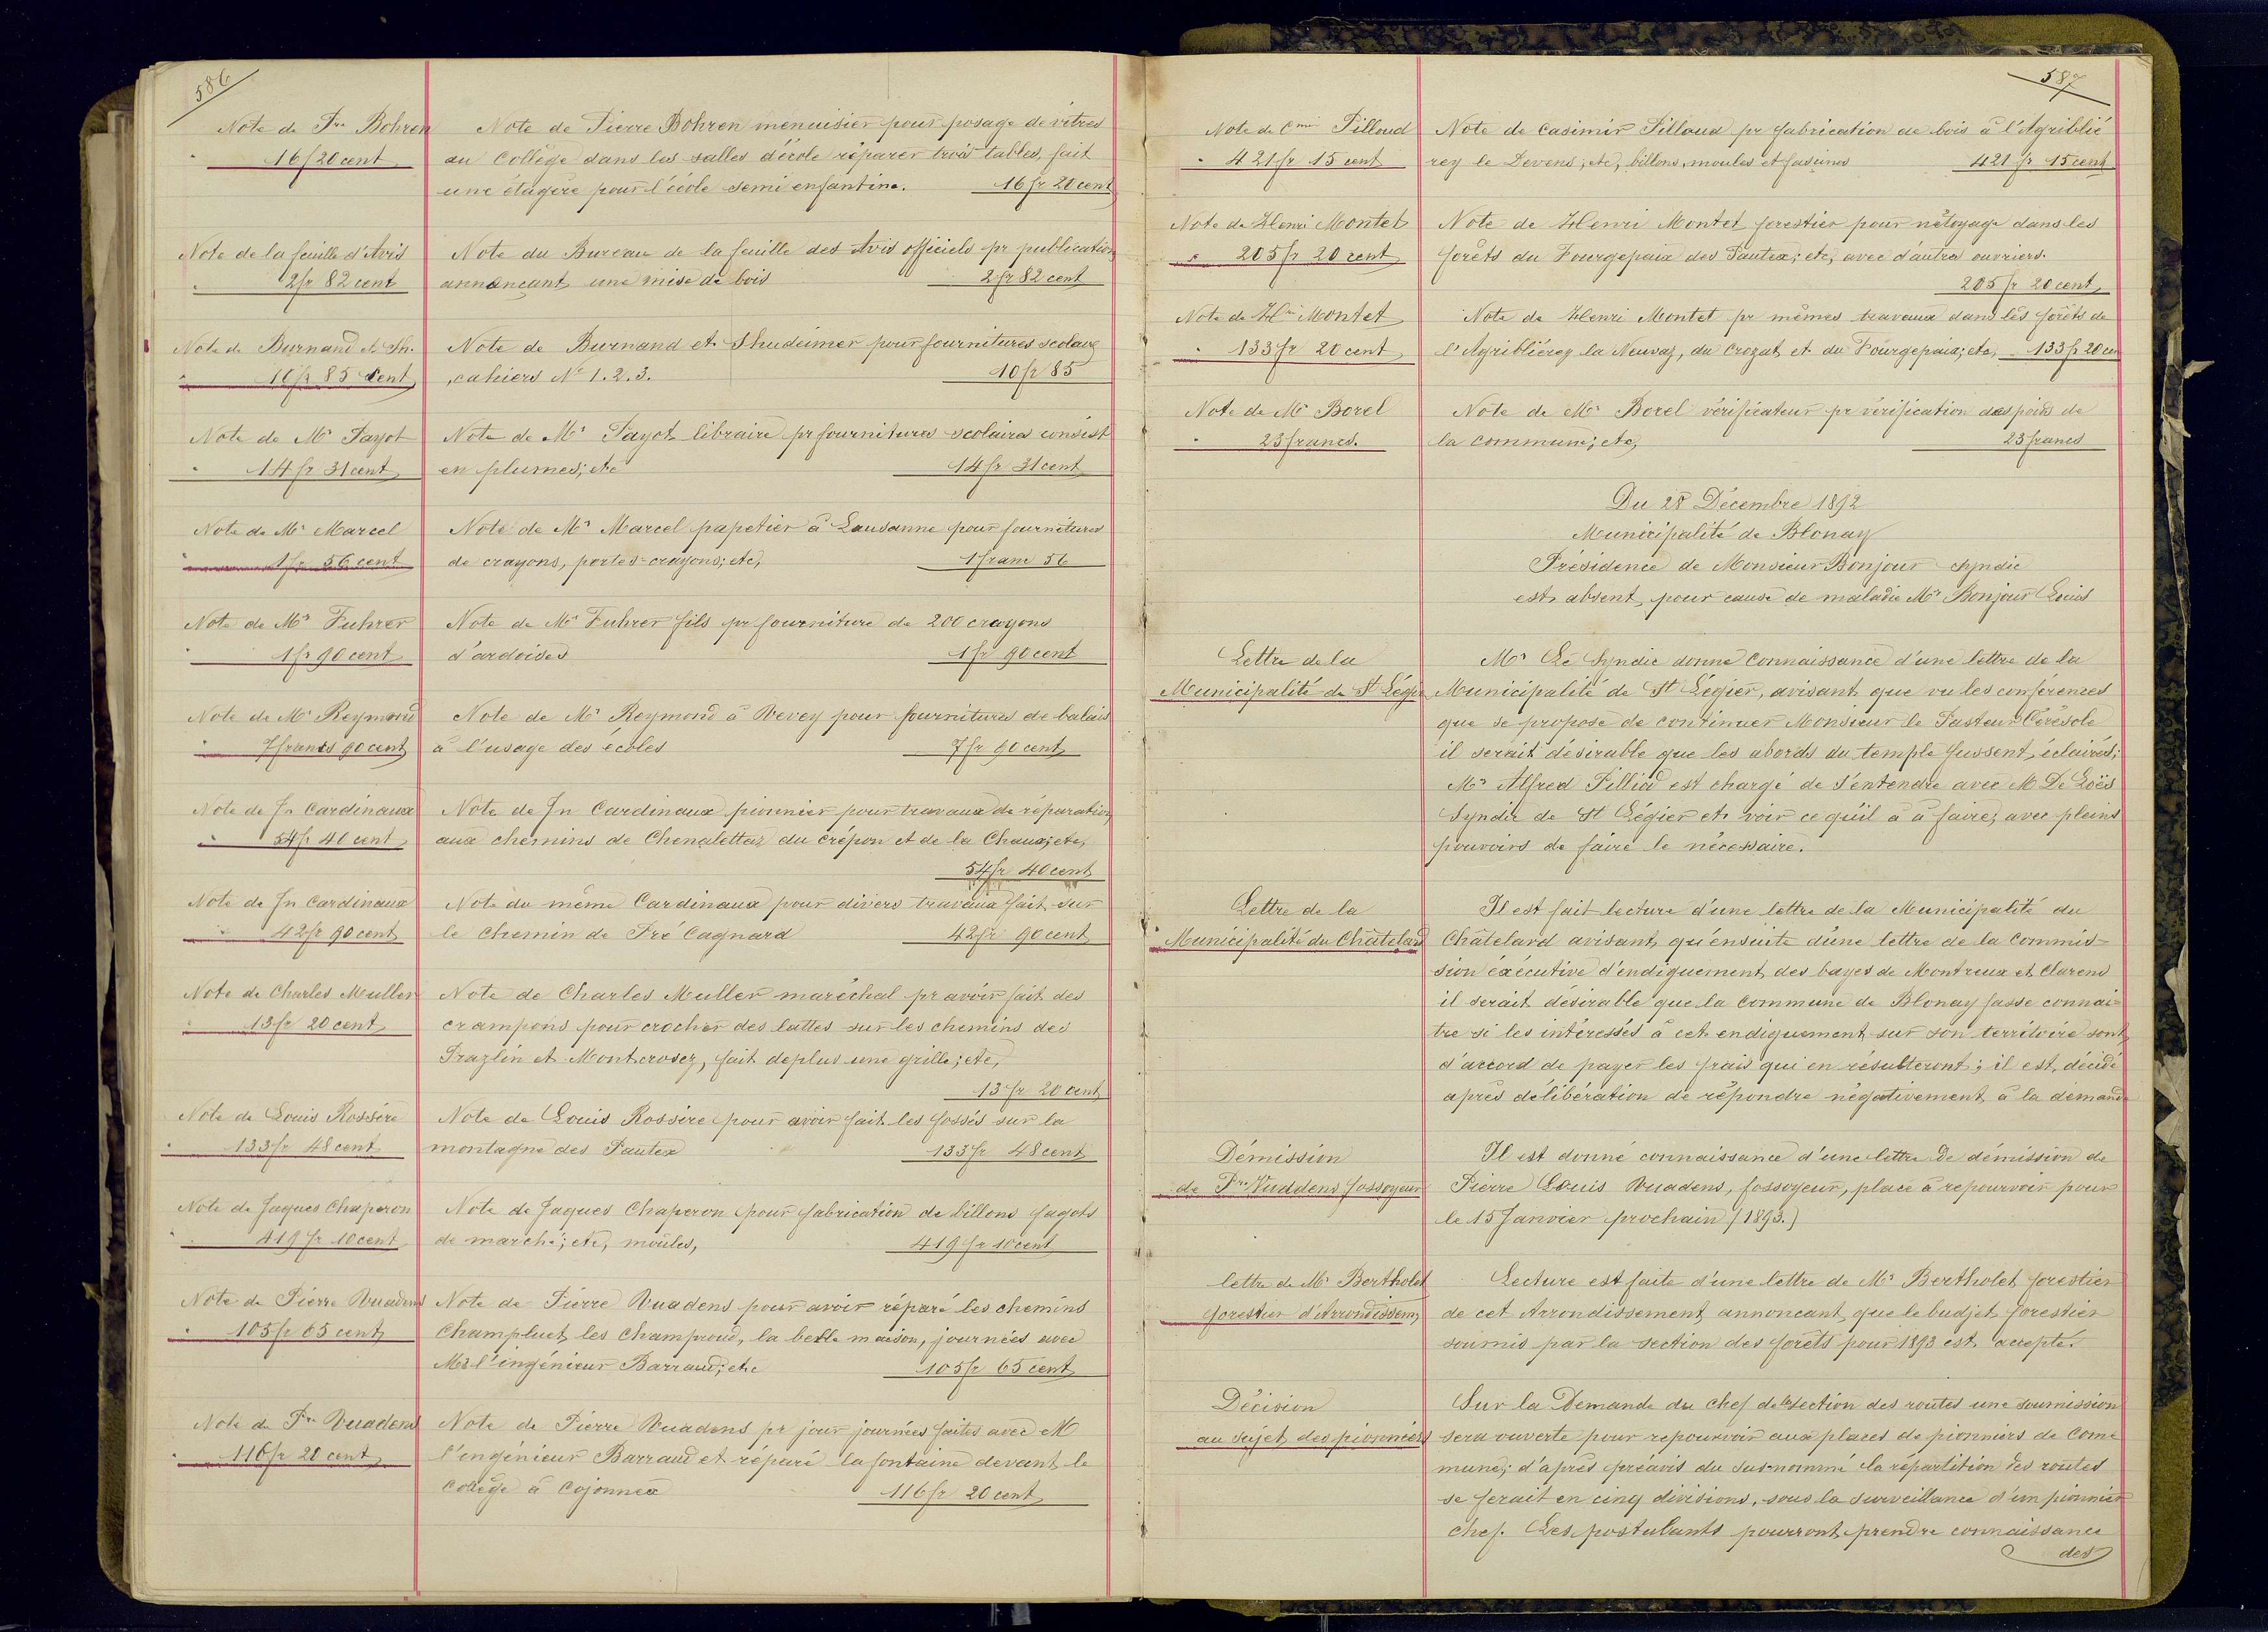 586
Note de Pre Bohren
" 16 f 20 cent
Note de Pierre Bohren menuisier pour posage de vitres
au Collège dans les salles d'école réparer trois tables, fait
une étagère pour l'école semi enfantine. 16 fr 20 cent
Note de la feuille d'Avis
" 2 fr 82 cent
Note du Bureau de la feuille des Avis officiels pr publication
annonçant une mise de bois 2 fr 82 cent
Note de Burnand et Sh.
" 10 fr 85 cent
Note de Burnand et Shudeimer pour fournitures scolaire
, cahiers No 1. 2. 3. 10 fr 85
Note de Mr Payot
" 14 fr 31 cent
Note de Mr Payot libraire pr fournitures scolaires consist
en plumes; etc 14 fr 31 cent
Note de Mr Marcel
" 1 fr 56 cent
Note de Mr Marcel papetier à Lausanne pour fournitures
de crayons, portes-crayons; etc, 1 franc 56
Note de Mr Fuhrer
" 1 fr 90 cent
Note de Mr Fuhrer fils pr fourniture de 200 crayons
d'ardoises 1 fr 90 cent
Note de Mr Reymond
" 7 francs 90 cent
Note de Mr Reymond à Vevey pour fournitures de balais
à l'usage des écoles 7 fr 90 cent
Note de Jn Cardinaux
" 54 fr 40 cent
Note de Jn Cardinaux pionnier pour travaux de réparation
aux chemins de Chenalettaz du crépon et de la Chaux; etc,
54 fr 40 cent
Note de Jn Cardinaux
" 42 fr 90 cent
Note du même Cardinaux pour divers travaux fait sur
le chemin de Pré Cagnard 42 fr 90 cent
Note de Charles Muller
" 13 fr 20 cent
Note de Charles Muller maréchal pr avoir fait des
crampons pour crocher des lattes sur les chemins des
Prazlin et Montcrosez, fait deplus une grille; etc,
13 fr 20 cent
Note de Louis Rossire
" 133 fr 48 cent
Note de Louis Rossire pour avoir fait les fossés sur la
montagne des Pautex 133 fr 48 cent
Note de Jaques Chaperon
" 419 fr 10 cent
Note de Jaques Chaperon pour fabrication de billons fagots
de marché; etc, moules, 419 fr 10 cent
Note de Pierre Vuadens
" 105 fr 65 cent
Note de Pierre Vuadens pour avoir réparé les chemins
Champluet les Champroud, la belle maison, journées avec
Mr l'ingénieur Barraud; etc 105 fr 65 cent
Note de Pre Vuadens
" 116 fr 20 cent
Note de Pierre Vuadens pr jour journées faites avec M
l'ingénieur Barraud et réparé la fontaine devant le
Collège à Cojonnex 116 fr 20 cent
587
Note de Cmir Pilloud
" 421 fr 15 cent
Note de Casimir Pilloud pr fabrication de bois à l'Agriblié
rey le Devens; etc, billons, moules et fascines 421 fr 15 cent
Note de Henri Montet
" 205 fr 20 cent
Note de Henri Montet forestier pour nétoyage dans les
forêts du Fourgepaix des Pautex; etc, avec d'autres ouvriers.
205 fr 20 cent
Note de Hri Montet
" 133 fr 20 cent
Note de Henri Montet pr mêmes travaux dans les forêts de
l'Agribliérey la Neuvaz, du Crozat et du Fourgepaix; etc, 133 fr 20 cen
Note de Mr Borel
" 23 francs.
Note de Mr Borel vérificateur pr vérification des poids de
la commune; etc, 23 francs
Du 28 Décembre 1892
Municipalité de Blonay
Présidence de Monsieur Bonjour Syndic
est absent pour cause de maladie Mr Bonjour Louis
Lettre de la
Municipalité de St Légier
Mr Le Syndic donne connaissance d'une lettre de la
Municipalité de St Légier, avisant que vu les conférences
que se propose de continuer Monsieur le Pasteur Cérésole
il serait désirable que les abords du temple fussent éclairés;
Mr Alfred Pilliod est chargé de s'entendre avec M De Loës
Syndic de St Légier et voir ce qu'il à à faire; avec pleins
pouvoirs de faire le nécessaire.
Lettre de la
Municipalité du Châtelard
Il est fait lecture d'une lettre de la Municipalité du
Châtelard avisant qu'ensuite d'une lettre de la Commis-
sion éxécutive d'endiguement des bayes de Montreux et Clarens
il serait désirable que la Commune de Blonay fasse connai-
tre si les intéressés à cet endiguement sur son territoire sont
d'accord de payer les frais qui en résulteront; il est décidé
après délibération de répondre négativement à la demande
Démission
de Pre Vuddens fossoyeur
Il est donné connaissance d'une lettre de démission de
Pierre Louis Vuadens, fossoyeur, place à repourvoir pour
le 15 Janvier prochain (1893.)
lettre de Mr Bertholet
forestier d'Arrondissem
Lecture est faite d'une lettre de Mr Bertholet forestier
de cet Arrondissement annoncant que le budjet forestier
soumis par la section des forêts pour 1893 est accepté.
Décision
au sujet des pionniers
Sur la Demande du chef de la section des routes une soumission
sera ouverte pour repourvoir aux places de pionniers de Com-
mune; d'après préavis du sus-nommé la répartition des routes
se ferait en cinq divisions, sous la surveillance d'un pionnier
chef. Les postulants pourront prendre connaissance
des